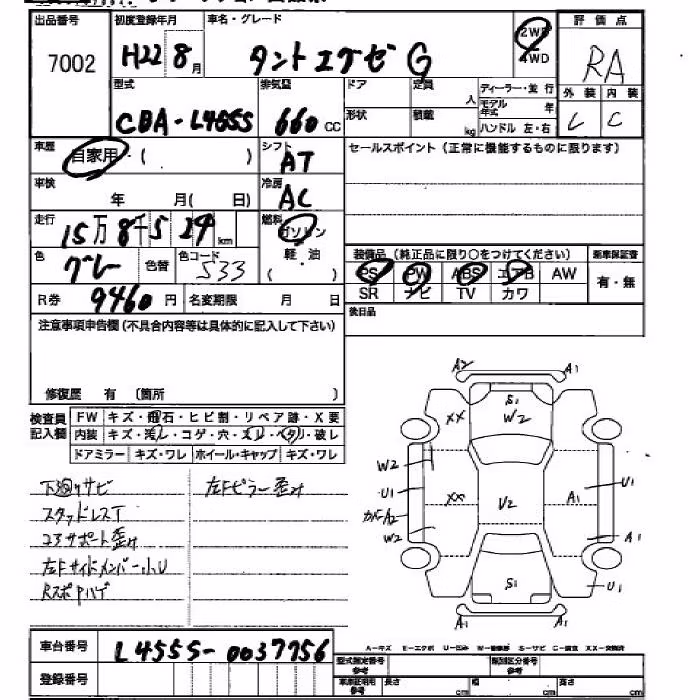 出品番号 初度登録年月 車名・グレード 評価点
7002 H22 8月 タントエグゼ G 2WD 4WD RA
型式 排気量 ドア 定員 人 ディーラー・並行 外装 内装
CBA-L455S 660 cc 形状 積載 kg モデル年式 年 ハンドル 左・右 C
車歴 自家用・( ) シフト AT セールスポイント(正常に機能するものに限ります)
車検 年 月( 日) 冷房 AC
走行 15万8千5 29 km 燃料 ガソリン
色 グレー 色替 色コード S33 軽・油 ( ) 装備品(純正品に限り○をつけてください) 新車保証書
PS PW ABS エアB AW 有・無
R券 9460円 名変期限 月 日 SR ナビ TV カワ
注意事項申告欄(不具合内容等は具体的に記入して下さい) 後日品
修復歴 有 〔箇所 〕
検査員記入欄 FW キズ・飛石・ヒビ割・リペア跡・X要
内装 キズ・汚レ・コゲ・穴・スレ・ベタリ・破レ
ドアミラー キズ・ワレ ホイール・キャップ キズ・ワレ
A2 A1
S1
XX W2
W2
U1 XX U2 A1 U1
カバーA2
W2 A1
S1 U1
A1 A1
下廻りサビ 左Fピラー歪み
スタッドレスT
コアサポート歪み
左FサイドメンバーU小
RスポPハゲ
車台番号 L455S-0037756
A-キズ E-エクボ U-凹み W-補修跡 S-サビ C-腐食 XX-交換済
登録番号 型式指定番号 参考 類別区分番号 参考
車庫証明用 参考 長さ cm 幅 cm 高さ cm